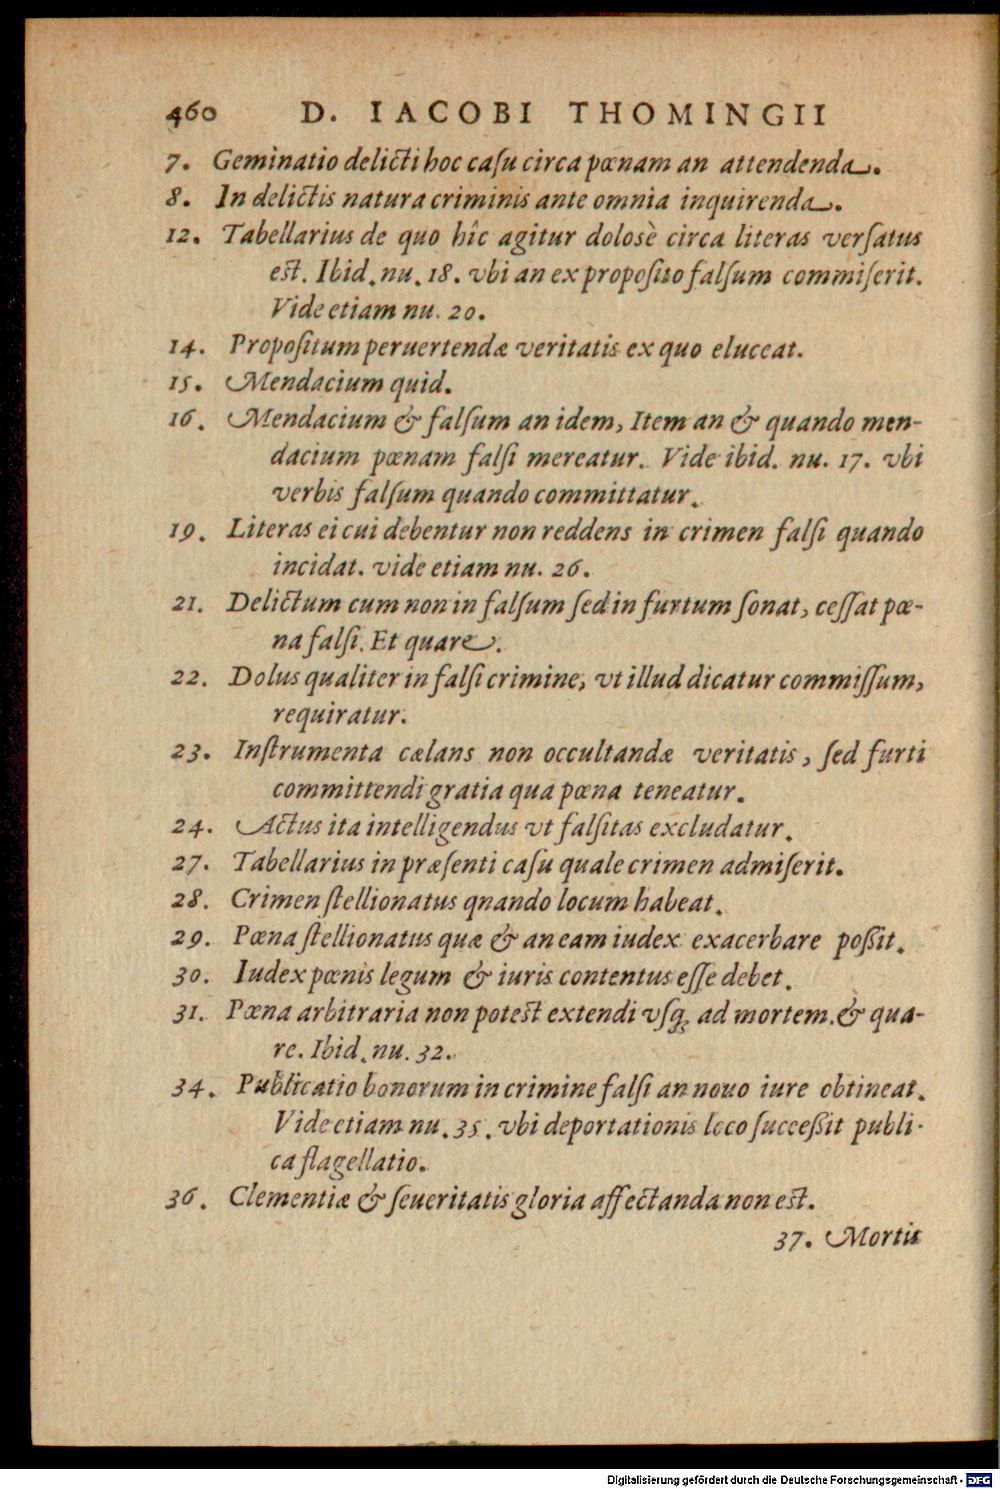 460 D. IACOBI THOMINGII
7. Geminatio delicti hoc casu circa pœnam an attendenda.
8. In delictis natura criminis ante omnia inquirenda.
12. Tabellarius de quo hîc agitur dolosè circa literas versatus
est. Ibid. nu. 18. vbi an ex proposito falsum commiserit.
Vide etiam nu. 20.
14. Propositum peruertendæ veritatis ex quo eluceat.
15. Mendacium quid.
16. Mendacium & falsum an idem, Item an & quando men-
dacium pœnam falsi mereatur. Vide ibid. nu. 17. vbi
verbis falsum quando committatur.
19. Literas ei cui debentur non reddens in crimen falsi quando
incidat. vide etiam nu. 26.
21. Delictum cum non in falsum sed in furtum sonat, cessat pœ-
na falsi. Et quare.
22. Dolus qualiter in falsi crimine, vt illud dicatur commissum,
requiratur.
23. Instrumenta cælans non occultandæ veritatis, sed furti
committendi gratia qua pœna teneatur.
24. Actus ita intelligendus vt falsitas excludatur.
27. Tabellarius in præsenti casu quale crimen admiserit.
28. Crimen stellionatus qnando locum habeat.
29. Pœna stellionatus quæ & an eam iudex exacerbare possit.
30. Iudex pœnis legum & iuris contentus esse debet.
31. Pœna arbitraria non potest extendi vsq; ad mortem. & qua-
re. Ibid. nu. 32.
34. Publicatio bonorum in crimine falsi an nouo iure obtineat.
Vide etiam nu. 35. vbi deportationis loco successit publi-
ca flagellatio.
36. Clementiæ & seueritatis gloria affectanda non est.
37. Mortis
Digitalisierung gefördert durch die Deutsche Forschungsgemeinschaft - DFG